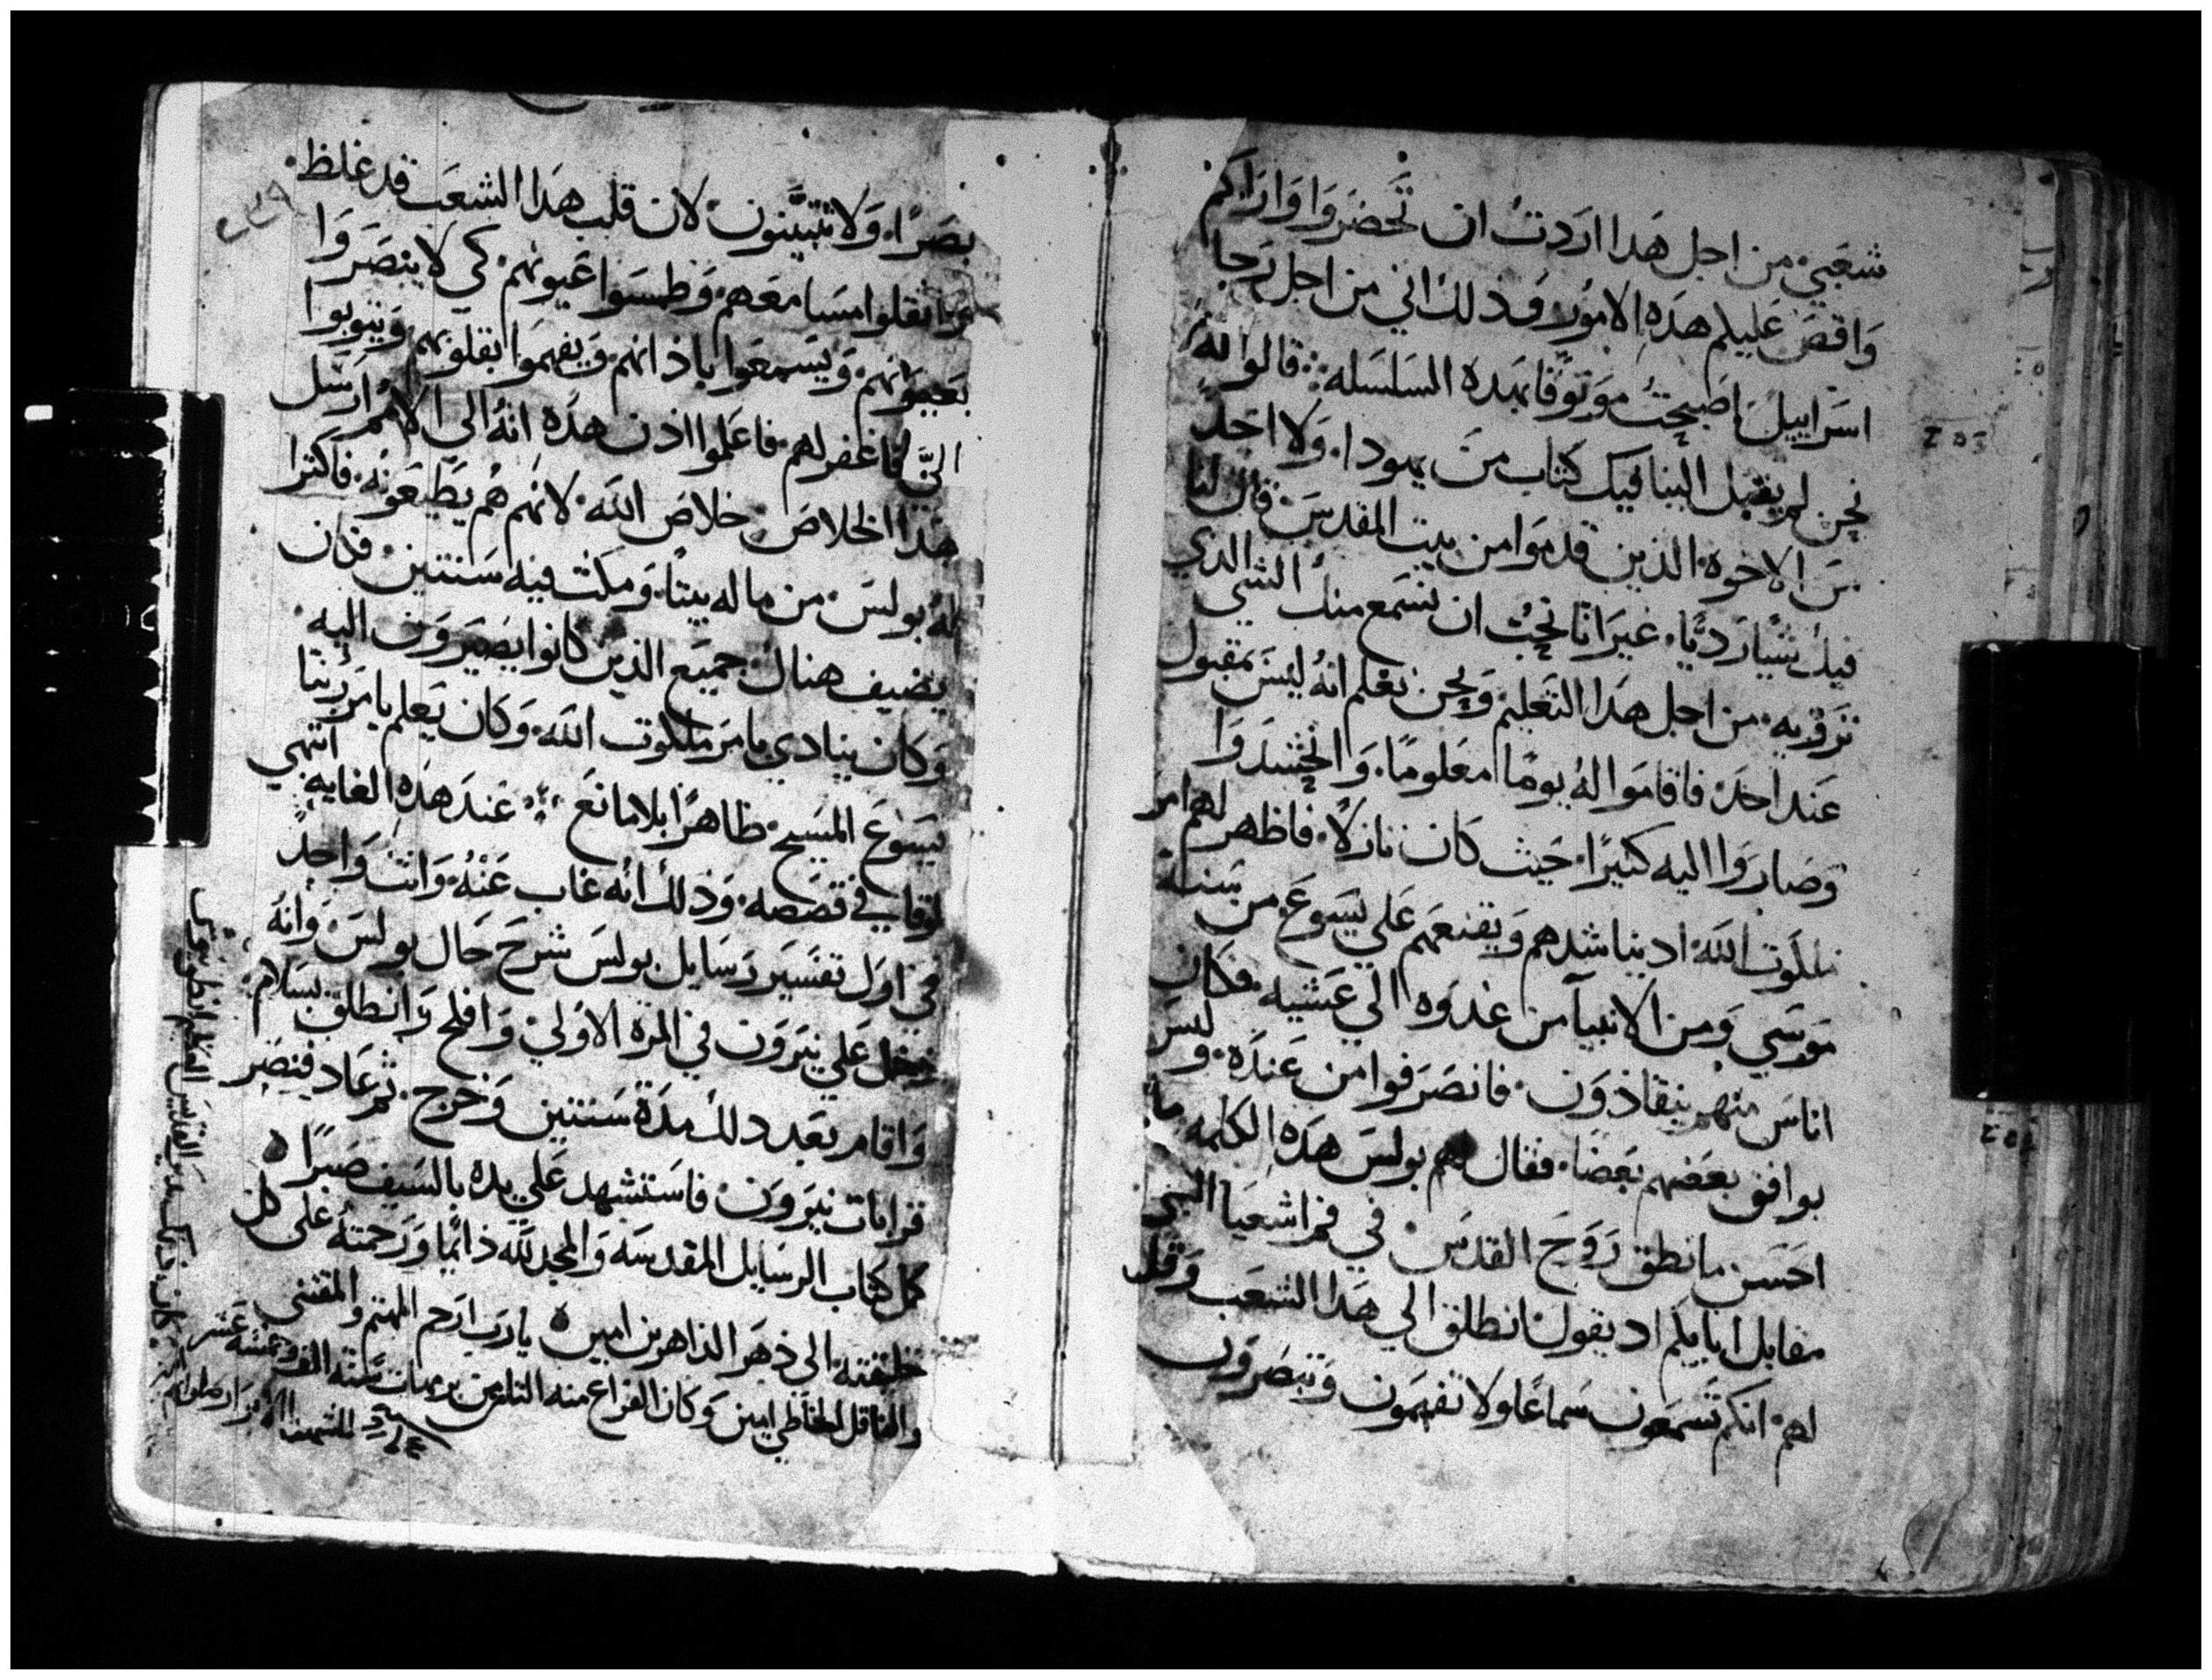 شعبي من اجل هذا اردت ان تحضروا واراكم
واقص عليكم هذه الامور وذلك اني من اجل رجا
اسراييل اصبحت موثوقا بهده السلسله قالوا له
نحن لم يقبل الينا فيك كتاب من يهودا ولا احد
من الاخوه الذين قدموا من بيت المقدس قال لنا
فيك شيا رديا غير انا نحب ان نسمع منك الشي الذي
من اجل هذا التعليم ونحن نعلم انه ليس بمقبول
عند احد فاقاموا له يوما معلوما واحتشدوا
وصاروا اليه كثيرا حيث كان نازلا فاظهر لهم امر
ملكوت الله اد يناشدهم ويقنعهم علي يسوع من سنة
موسي ومن الانبيا من غدوه الي عشيه فكان
اناس منهم ينقادون فانصرفوا من عنده وليس
يوافق بعضهم بعضا فقال لهم بولس هذه الكلمه ما
احسن ما نطق روح القدس في فم اشعيا النبي
مقابل ابايكم اد يقول انطلق الي هذا الشعب وقل
لهم انكم تسمعون سماعا ولا تفهمون وتبصرون
بصرا ولا تتبينون لان قلب هذا الشعب قد غلظ
اثقلوا مسامعهم وطمسوا عيونهم كي لا يبصروا
بعيونهم ويسمعوا باذانهم ويفهموا بقلوبهم ويتوبوا
الي فاغفر لهم فاعلموا اذن هذه انه الي الامم ارسل
هذا الخلاص خلاص الله لانهم هم يطيعونه فاكترا
له بولس من ماله بيتا ومكث فيه سنتين فكان
يضيف هناك جميع الذين كانوا يصيرون اليه
وكان ينادي بامر ملكوت الله وكان يعلم بامر ربنا
يسوع المسيح ظاهرا بلا مانع عند هذه الغايه انتهي
لوقا في قصصه وذلك انه غاب عنه وانت واجد
في اول تفسير رسايل بولس شرح حال بولس وانه
دخل علي نيرون في المره الاولي وافلح وانطلق بسلام
واقام بعد دلك مدة سنتين وخرج ثم عاد فنصر
قرابات نيرون فاستشهد علي يده بالسيف صبرا
كمل كتاب الرسايل المقدسه والمجد لله دايما ورحمته على كل
خليقته الى دهر الداهرين امين يا رب ارحم المهتم والمقتني
والناقل الخاطي امين وكان الفراغ منه الثامن برمهات سنة الف
للشهدا الابرار